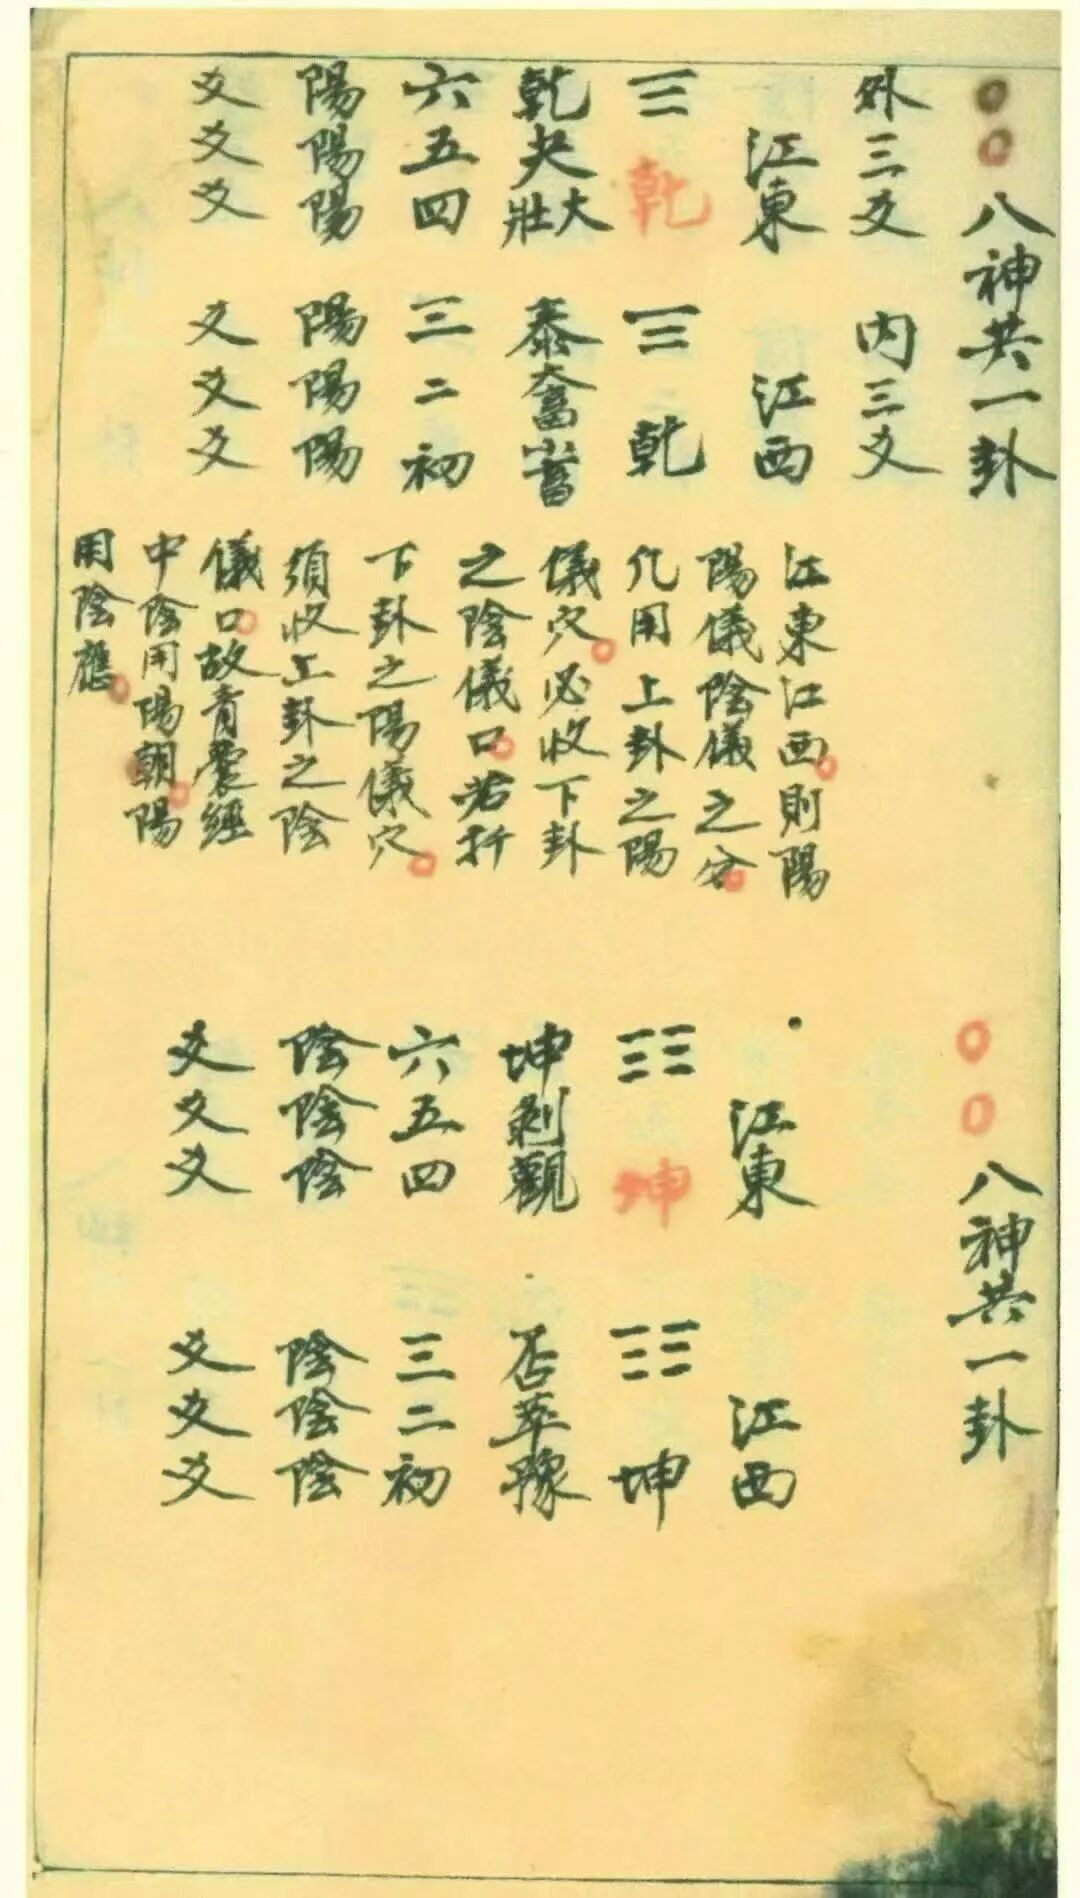 八神共一卦
外三爻
內三爻
江東
江西
☰乾
☰乾
乾夬大壯
泰大畜小畜
六五四
三二初
陽陽陽
陽陽陽
爻爻爻
爻爻爻
江東江西則陽
陽儀陰儀之分
凡用上卦之陽
儀穴必收下卦
之陰儀口若扦
下卦之陽儀穴
須收上卦之陰
儀口故青囊經
中陰用陽朝陽
用陰應
八神共一卦
江東
江西
☷坤
☷坤
坤剝觀
否萃豫
六五四
三二初
陰陰陰
陰陰陰
爻爻爻
爻爻爻